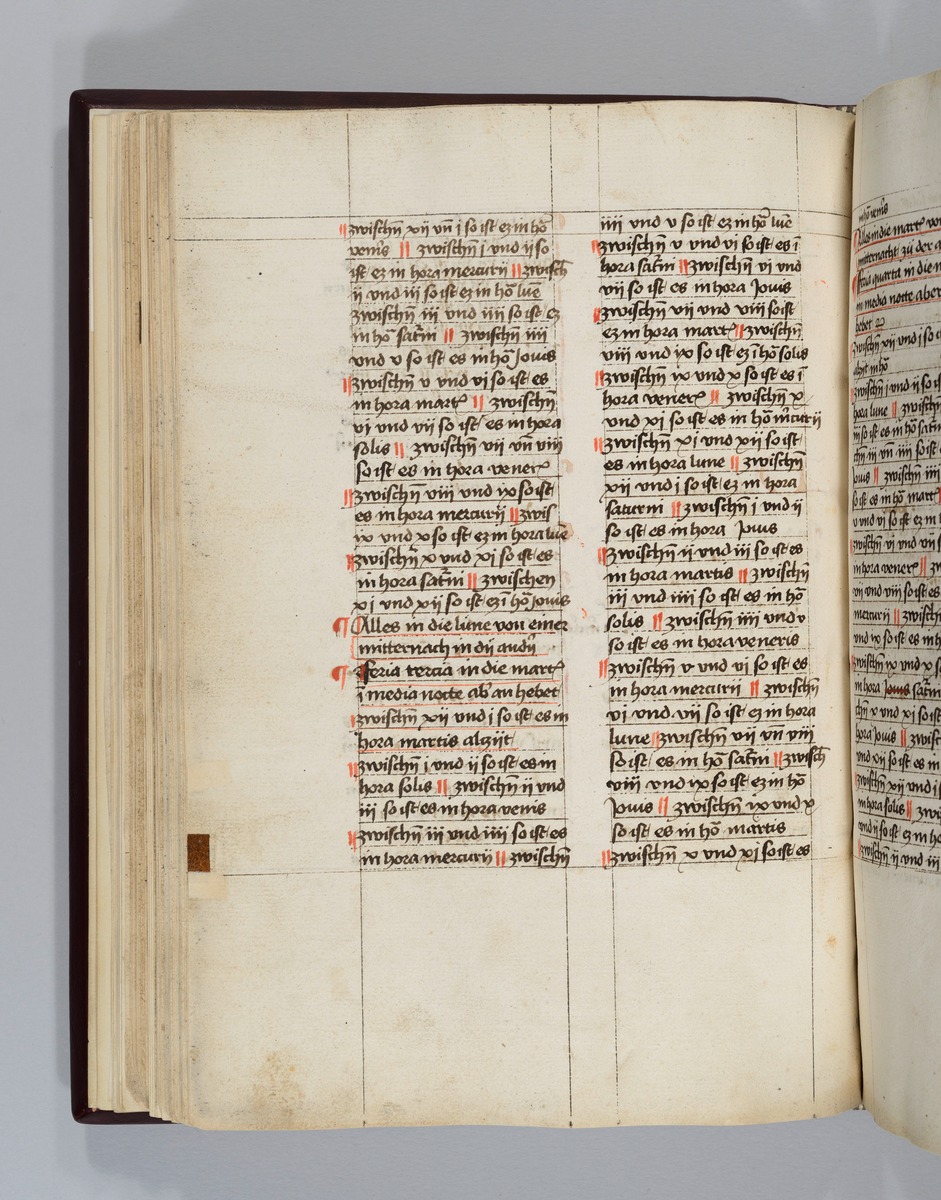 zwischn̄ xij vn̄ j so ist ez in ho᷒
veneris zwischn̄ j vnd ij so
ist ez in hora mercurij zwisch
ij vnd iij so ist ez in ho᷒ lune
zwischn̄ iij vnd iiij so ist ez
in ho᷒ sat᷒ni zwischn̄ iiij
vnd v so ist es in ho᷒ Jouis
zwischn̄ v vnd vj so ist es
in hora mart᷒ zwischn̄
vj vnd vij so ist es in hora
solis zwischn̄ vij vn̄ viij
so ist es in hora vener᷒
zwischn̄ viij vnd ix so ist
es in hora mercurij zwis
ix vnd x so ist ez in hora lūe
zwischn̄ x vnd xj so ist es
in hora sat᷒ni zwischen
xj vnd xij so ist ez ī ho᷒ Jouis
Alles in die lune von einer
mitternach in dij andn᷒
feria tercia in die mart᷒
in media nocte ab an hebet
zwischn̄ xij vnd j so ist es in
hora martis alzijt
zwischn̄ j vnd ij so ist es in
hora solis zwischn̄ ij vnd
iij so ist es in hora venis
zwischn̄ iij vnd iiij so ist es
in hora mercurij zwischn̄
iiij vnd v so ist ez in ho᷒ lūe
zwischn̄ v vnd vj so ist es ī
hora sat᷒ni zwischn̄ vj vnd
vij so ist es in hora Jouis
zwischn̄ vij vnd viij so ist
ez in hora mart᷒ zwischn̄
viij vnd ix so ist ez ī ho᷒ solis
zwischn̄ ix vnd x so ist es ī
hora vener᷒ zwischn̄ x
vnd xj so ist es in ho᷒ m᷒curij
zwischn̄ xj vnd xij so ist
es in hora lune zwischn̄
xij vnd j so ist ez in hora
saturni zwischn̄ j vnd ij
so ist es in hora Jouis
zwischn̄ ij vnd iij so ist es
in hora martis zwischn̄
iij vnd iiij so ist es in ho᷒
solis zwischn̄ iiij vnd v
so ist es in hora veneris
zwischn̄ v vnd vj so ist es
in hora mercurij zwischn̄
vj vnd vij so ist ez in hora
lune zwischn̄ vij vn viij
so ist es in ho᷒ sat᷒ni zwisch̄
viij vnd ix so ist ez in ho᷒
Jouis zwischn̄ ix vnd x
so ist es in ho᷒ martis
zwischn̄ x vnd xj so ist es